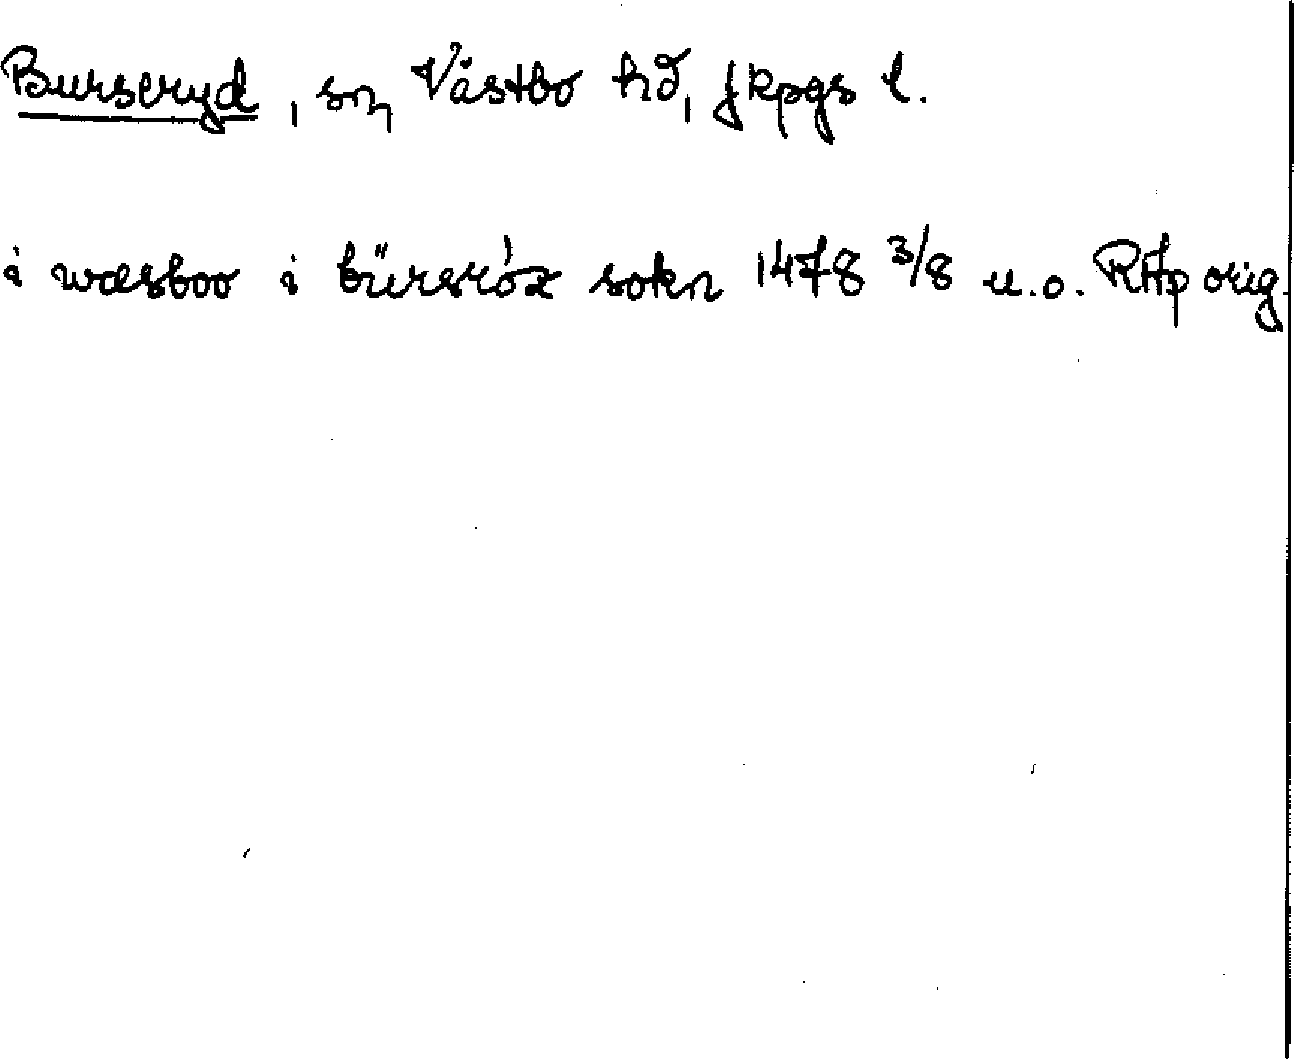 Burseryd, sn, Västbo hd, Jkpgs l.
i wæsboo i bürsröæ sokn 1478 3/8 u.o. RAp orig.